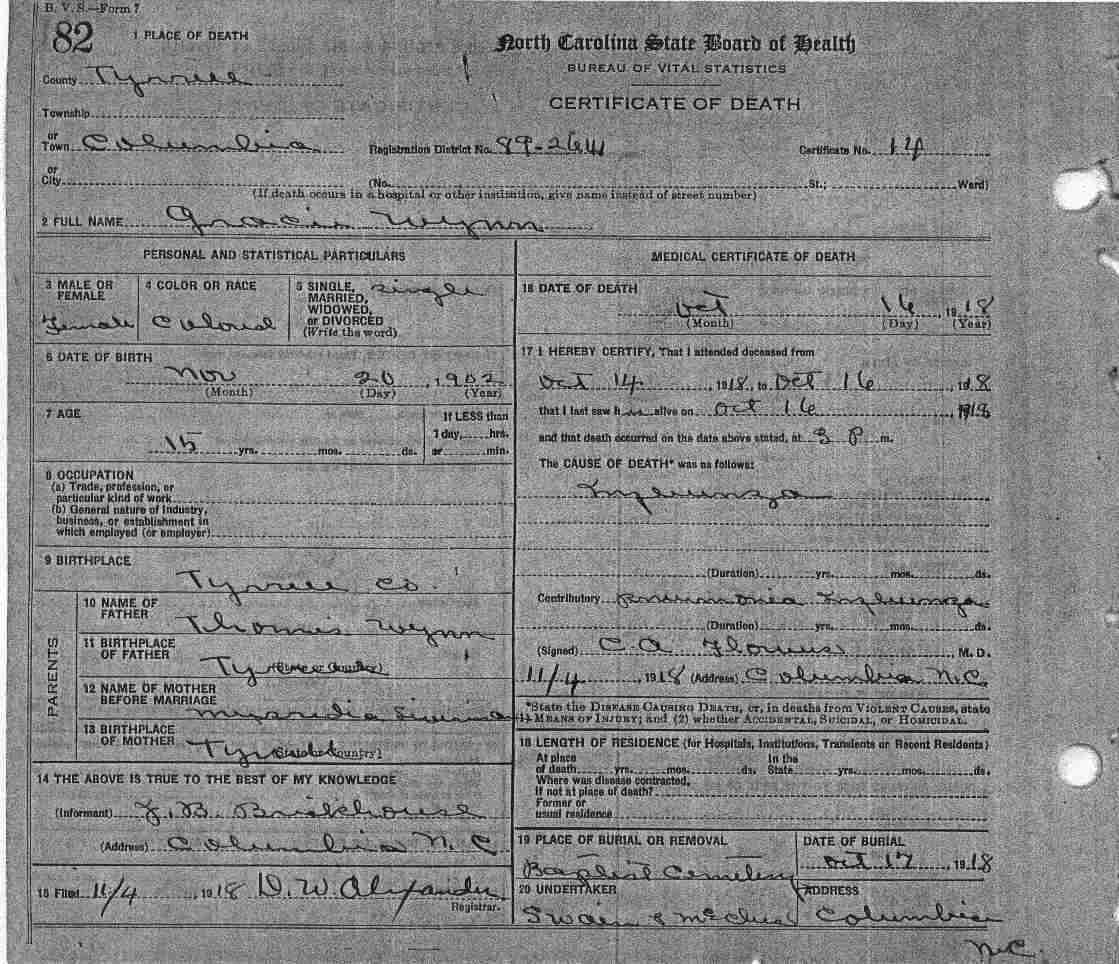 B. V. S.—Form 7
82
1 PLACE OF DEATH
North Carolina State Board of Health
BUREAU OF VITAL STATISTICS
CERTIFICATE OF DEATH
County Tyrrell
Township
or Town Columbia Registration District No. 89-264 Certificate No. 14
or City (No. St.; Ward)
(If death occurs in a hospital or other institution, give name instead of street number)
2 FULL NAME Gracie Wynn
PERSONAL AND STATISTICAL PARTICULARS
3 MALE OR FEMALE Female
4 COLOR OR RACE Colored
5 SINGLE, MARRIED, WIDOWED, or DIVORCED (Write the word) Single
6 DATE OF BIRTH
Nov 20, 1902
(Month) (Day) (Year)
7 AGE
15 yrs. mos. ds.
If LESS than 1 day, hrs. or min.
8 OCCUPATION
(a) Trade, profession, or
particular kind of work
(b) General nature of Industry,
business, or establishment in
which employed (or employer)
9 BIRTHPLACE
Tyrrell Co.
PARENTS
10 NAME OF FATHER
Thomis Wynn
11 BIRTHPLACE OF FATHER
Ty
12 NAME OF MOTHER BEFORE MARRIAGE
13 BIRTHPLACE OF MOTHER
Ty
14 THE ABOVE IS TRUE TO THE BEST OF MY KNOWLEDGE
(Informant) J. B. Brickhouse
(Address) Columbia N.C
15 Filed 11/4, 1918 D. W. Alexander
Registrar.
MEDICAL CERTIFICATE OF DEATH
16 DATE OF DEATH
Oct 16 1918
(Month) (Day) (Year)
17 I HEREBY CERTIFY, That I attended deceased from
Oct 14, 1918, to Oct 16, 1918
that I last saw h alive on Oct 16, 1918
and that death occurred on the date above stated, at 3 P. m.
The CAUSE OF DEATH* was as follows:
Influenza
(Duration) yrs. mos. ds.
Contributory Pneumonia Influenza
(Duration) yrs. mos. ds.
(Signed) C A Flowers, M. D.
11/4, 1918 (Address) Columbia N.C
*State the DISEASE CAUSING DEATH, or, in deaths from VIOLENT CAUSES, state
MEANS OF INJURY; and (2) whether ACCIDENTAL, SUICIDAL, or HOMICIDAL.
18 LENGTH OF RESIDENCE (for Hospitals, Institutions, Transients or Recent Residents)
At place of death yrs. mos. ds. In the State yrs. mos. ds.
Where was disease contracted,
If not at place of death?
Former or
usual residence
19 PLACE OF BURIAL OR REMOVAL
Baptist Cemetery
DATE OF BURIAL
Oct 17, 1918
20 UNDERTAKER
Swain &
ADDRESS
Columbia
N.C.